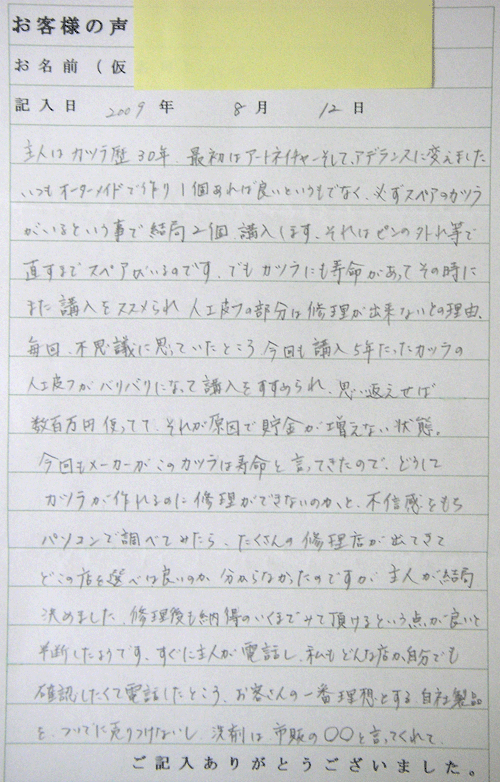 お客様の声
お名前(仮
記入日 2009年 8月 12日
主人はカツラ歴30年、最初はアートネイチャーそして、アデランスに変えました
いつもオーダーメイドで作り1個あれば良いというもでなく、必ずスペアのカツラ
がいるという事で結局2個講入します、それはピンの外れ等で
直すまでスペアがいるのです、でもカツラにも寿命があってその時に
また講入をススメられ人工皮フの部分は修理が出来ないとの理由、
毎回、不思議に思っていたところ今回も講入5年たったカツラの
人工皮フがバリバリになって講入をすすめられ、思い返えせば
数百万円使ってて、それが原因で貯金が増えない状態。
今回もメーカーがこのカツラは寿命と言ってきたので、どうして
カツラが作れるのに修理ができないのか、と、不信感をもち
パソコンで調べてみたら、たくさんの修理店が出てきて
どこの店を選べば良いのか分からなかったのですが主人が結局
決めました、修理後も納得のいくまでみて頂けるという点が良いと
判断したようです、すぐに主人が電話し、私もどんな店か自分でも
確認したくて電話したところ、お客さんの一番理想とする、自社製品
を、ついでに売りつけないし、洗剤は市販の○○と言ってくれて、
ご記入ありがとうございました。